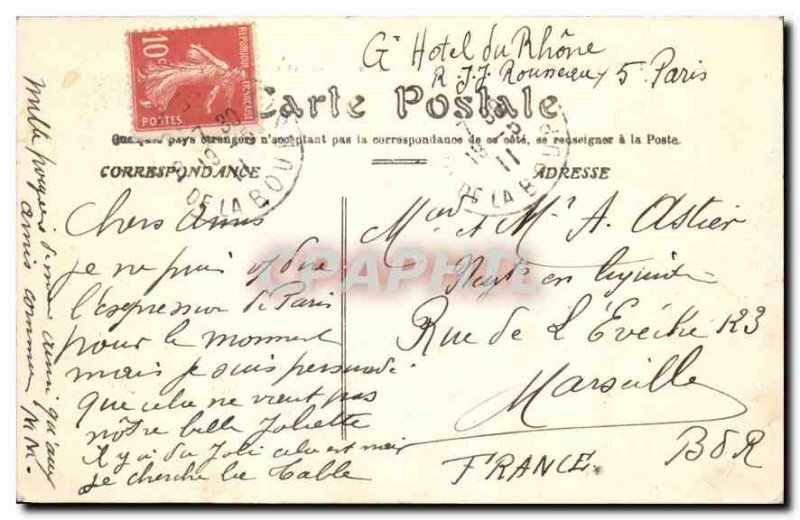 Gd Hotel du Rhône
R. J.J. Rousseau 5 Paris
10c
REPUBLIQUE FRANÇAISE
POSTES
Carte Postale
Quelques pays étrangers n'acceptant pas la correspondance de ce côté, se renseigner à la Poste.
CORRESPONDANCE
ADRESSE
DE LA BOU
DE LA BOUR
Chers Amis
je ne puis dire
l'expression de Paris
pour le moment
mais je suis persuadé
que cela ne vient pas
nôtre belle Joliette
il y a du Joli cela est mais
je cherche la Table
Mille de moi ainsi qu'aux
amis comme
M et Mr A. Astier
en
Rue de L'Evêché 123
Marseille
BdR
FRANCE
Delcampe